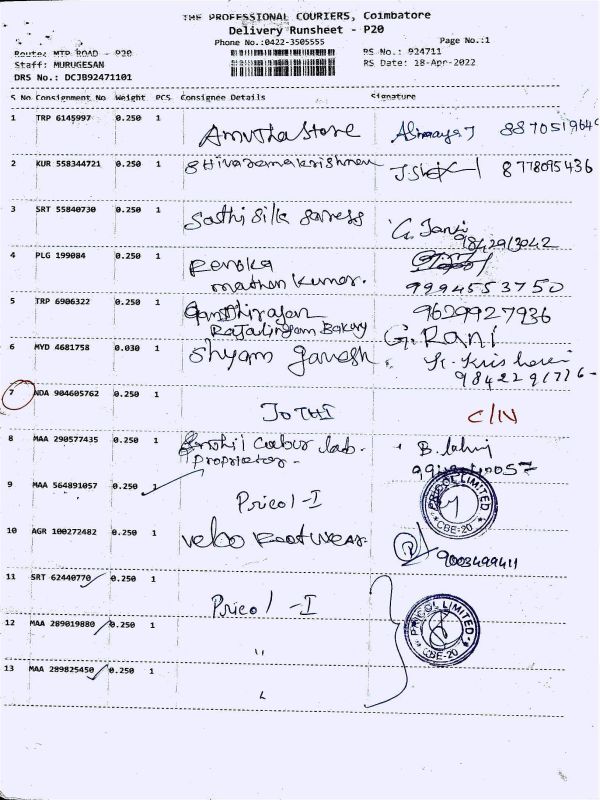 THE PROFESSIONAL COURIERS, Coimbatore
Delivery Runsheet - P20
Phone No.:0422-3505555 Page No.:1
Route: MTP ROAD - P20 RS No.: 924711
Staff: MURUGESAN RS Date: 18-Apr-2022
DRS No.: DCJB92471101
S No Consignment No Weight PCS Consignee Details Signature
1 TRP 6145997 0.250 1 Amutha Store
2 KUR 558344721 0.250 1 Shivaramakrishnan 8778095436
3 SRT 55840730 0.250 1 Sasthi Silk
4 PLG 199084 0.250 1 Renuka
mathan Kumar. 9994553750
5 TRP 6906322 0.250 1 Gandhirajan 9629927936
Rajalingam Bakery G. RANI
6 MYD 4681758 0.030 1 Shyam Ganesh.
7 NDA 904605762 0.250 1 JOTHI C/N
8 MAA 290577435 0.250 1 lab.
proprietor -
9 MAA 564891057 0.250 1 Pricol - I PRICOL LIMITED CBE-20
10 AGR 100272482 0.250 1 Foot Wear 9003499411
11 SRT 62440770 0.250 1 Pricol - I
12 MAA 289019880 0.250 1 " PRICOL LIMITED CBE-20
13 MAA 289825450 0.250 1